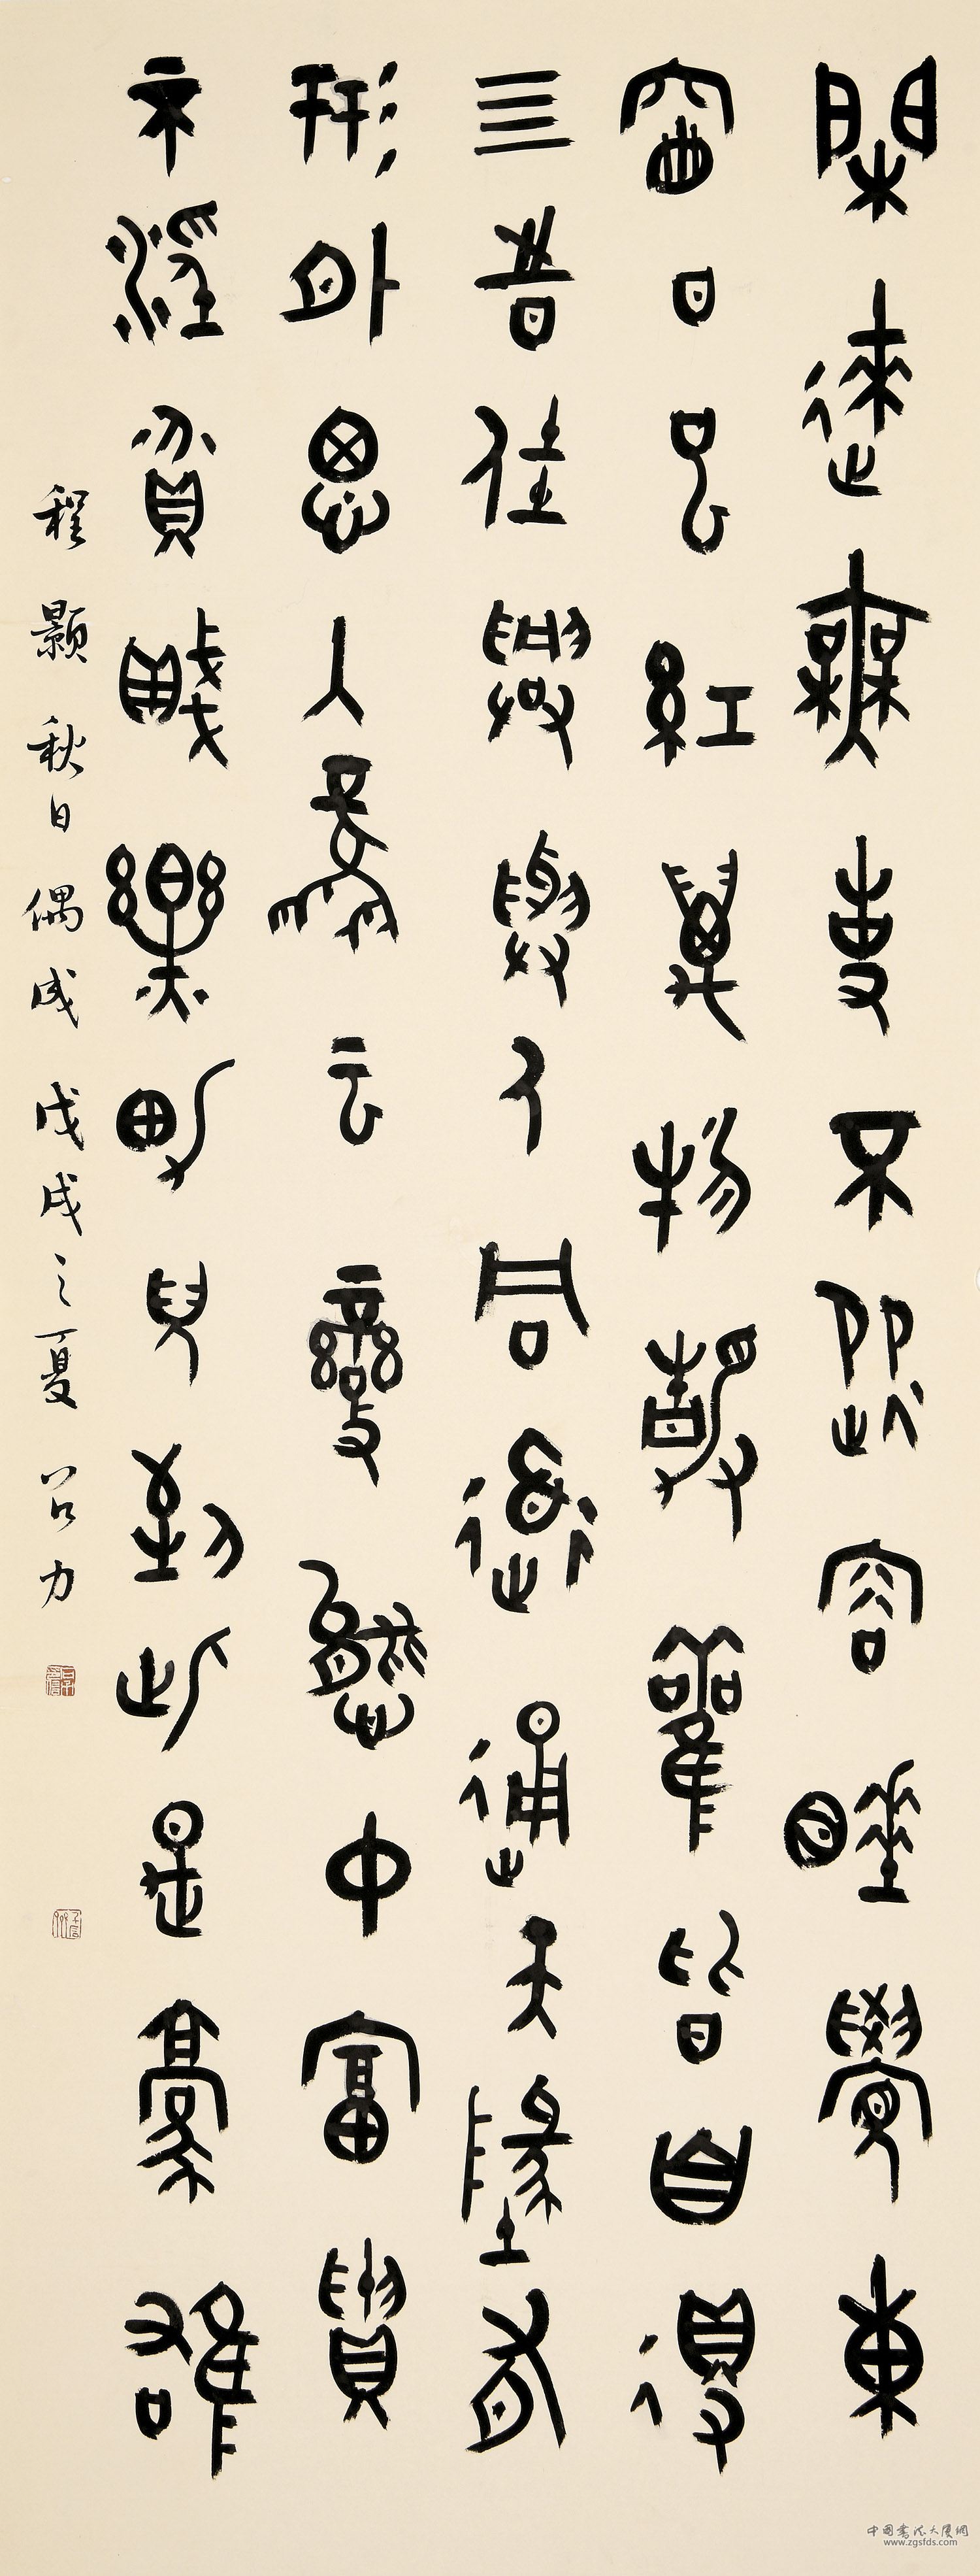 閑來無事不從容睡覺東
窗日已紅萬物靜觀皆自得
三昔佳興與人同道通天隊有
形外思入馬云變態中富貴
不淫貧賤樂男兒到此是豪雄
程顥秋日偶成戊戌之夏召力
中国书法大厦网
www.zgsfds.com